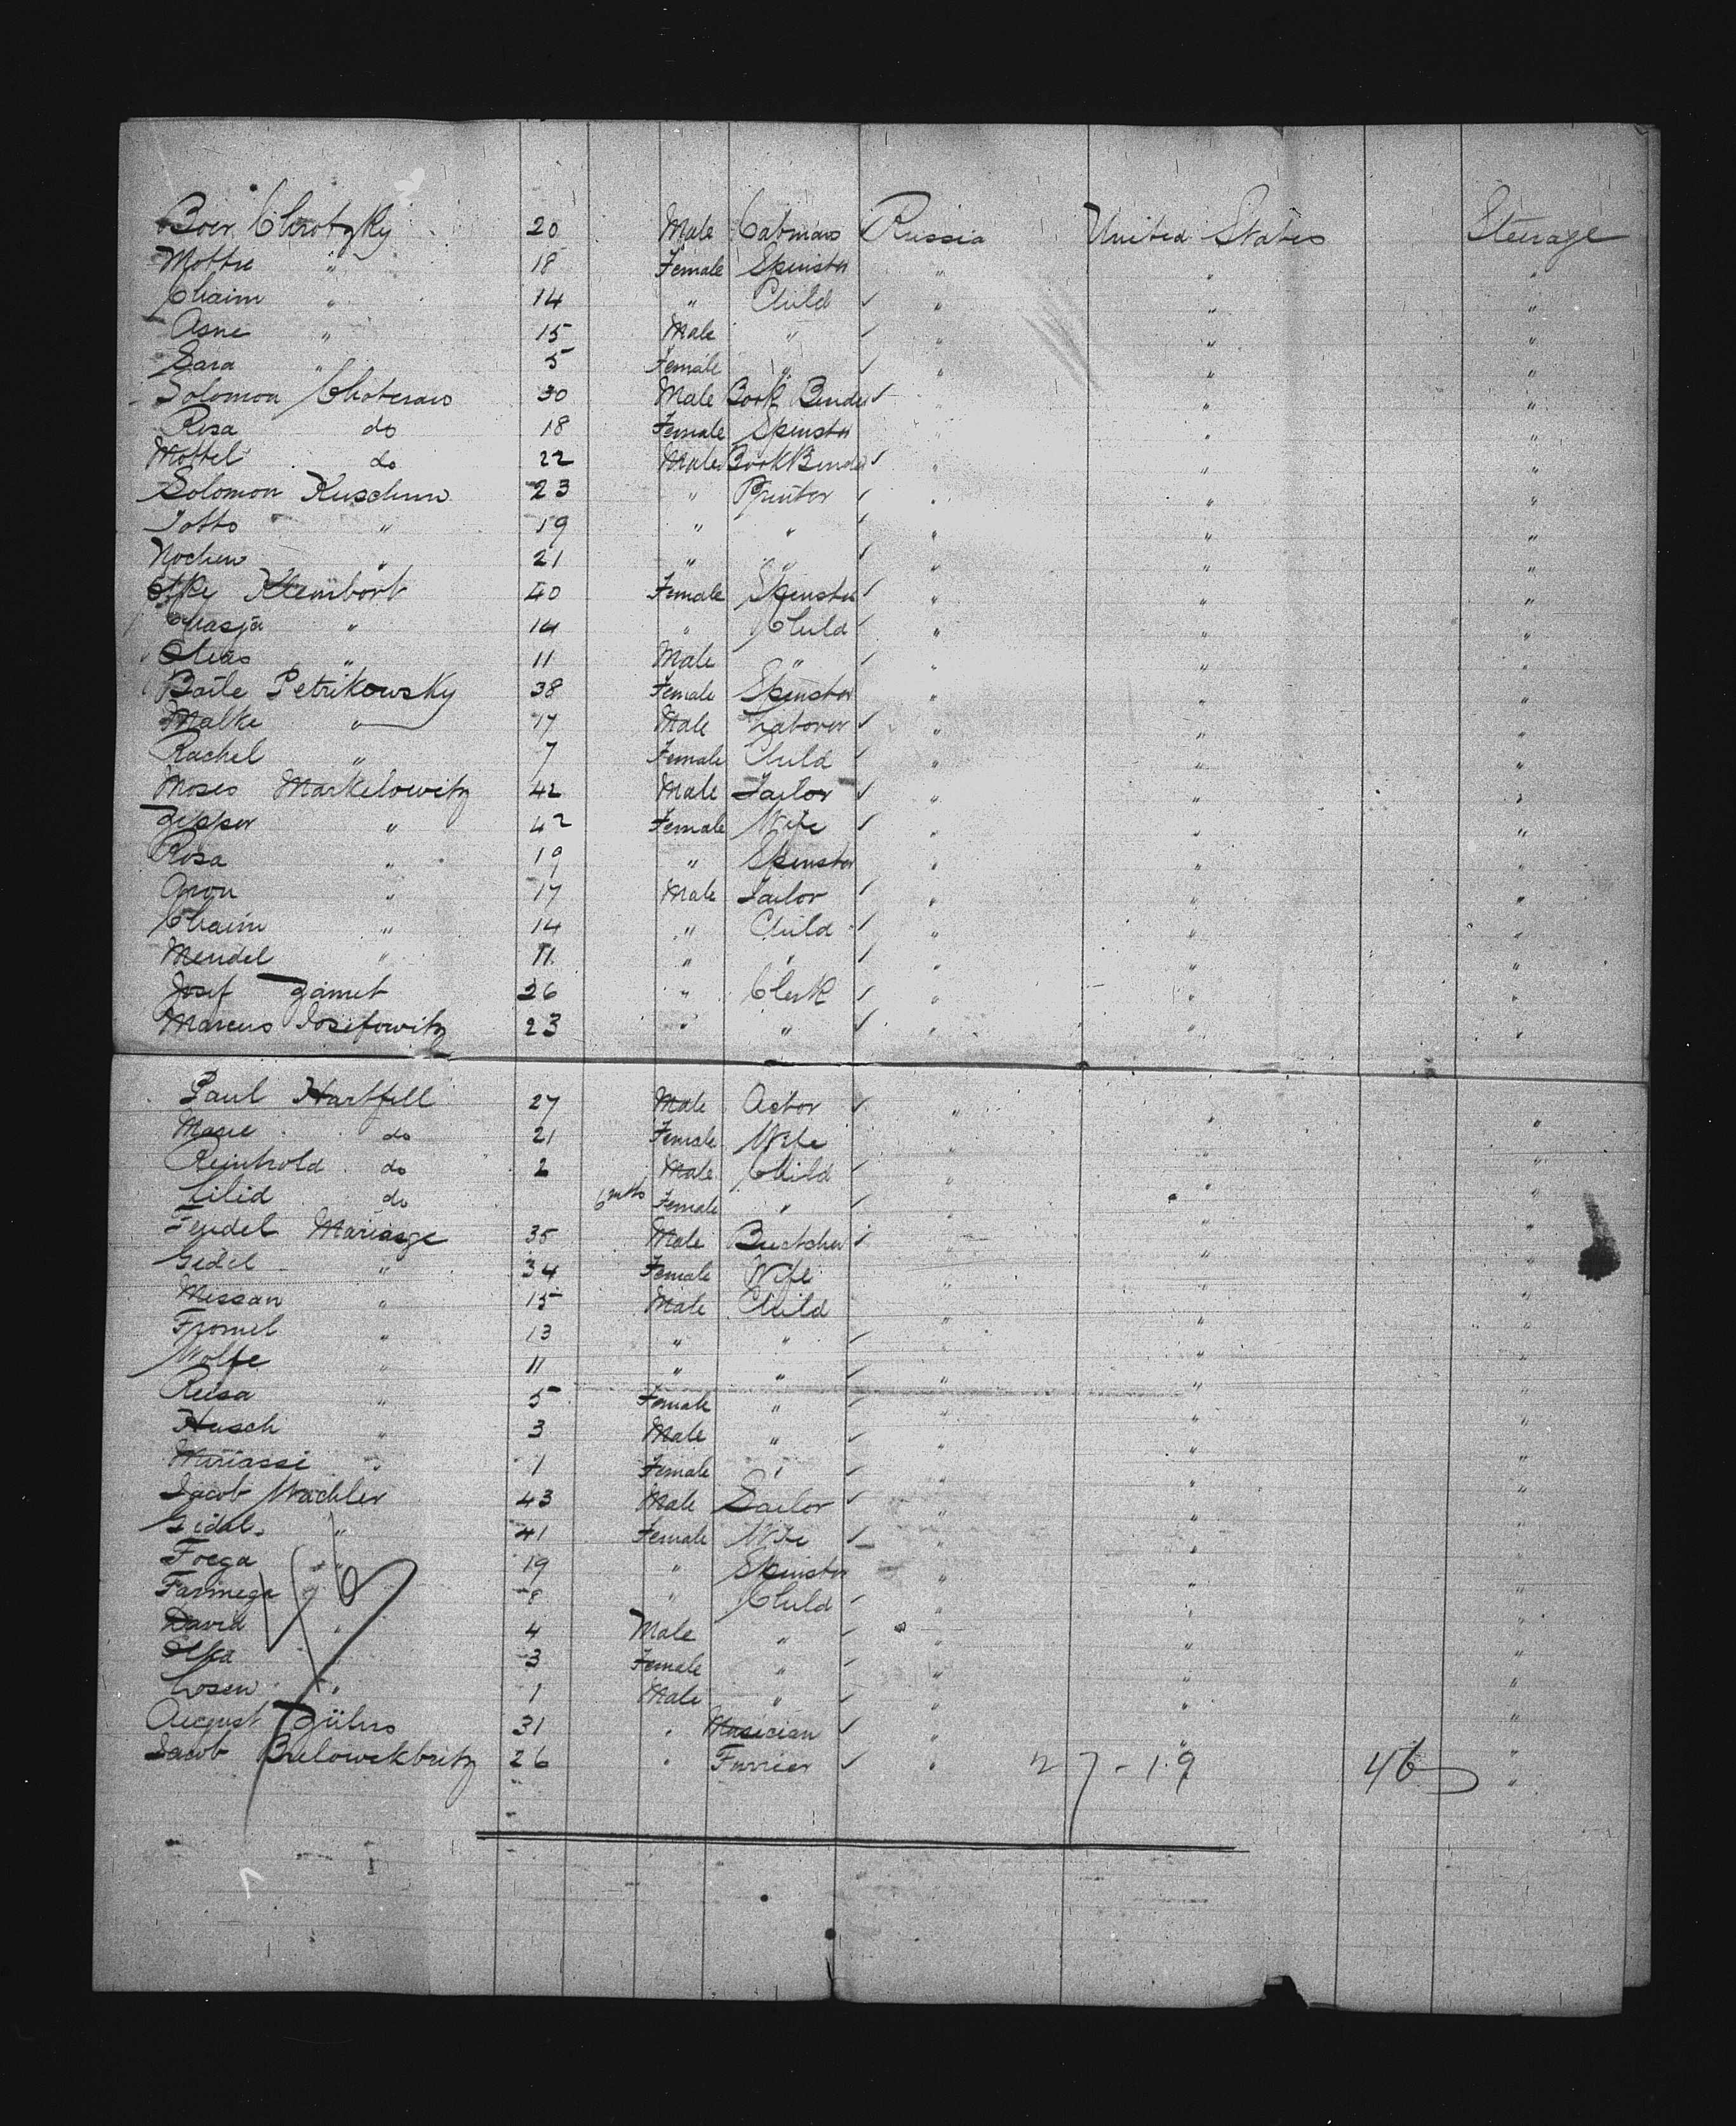 Boer Chrotzky 20 Male Cabman ✓ Russia United States Steerage
Mottre " 18 Female Spinster " " "
Chaim " 14 " Child ✓ " " "
Asne " 15 Male " ✓ " " "
Sara " 5 Female " ✓ " " "
Solomon Choteraw 30 Male Book Binder ✓ " " "
Risa do 18 Female Spinster " " "
Mottel do 22 Male Book Binder ✓ " " "
Solomon Kuschun 23 " Printer ✓ " " "
Jotto " 19 " " ✓ " " "
Nochem " 21 " " ✓ " " "
Klembort 40 Female Spinster ✓ " " "
Chasja " 14 " Child ✓ " " "
Elias " 11 Male " ✓ " " "
Baile Petrikowsky 38 Female Spinster " " "
Malke " 17 Male Laborer ✓ " " "
Rachel " 7 Female Child ✓ " " "
Moses Markelowitz 42 Male Tailor ✓ " " "
Zipper " 42 Female Wife ✓ " " "
Rosa " 19 " Spinster " " "
Aron " 17 Male Tailor ✓ " " "
Chaim " 14 " Child ✓ " " "
Mendel " 11 " " ✓ " " "
Josef Zamet 26 " Clerk ✓ " " "
Marcus Josefowitz 23 " " ✓ " " "
Paul Hartfell 27 Male Actor ✓ " " "
Marie do 21 Female Wife " " "
Reinhold do 2 Male Child ✓ " " "
Lilid do 6 mths Female " ✓ " " "
Feudel Mariasge 35 Male Butcher ✓ " " "
Gedel " 34 Female Wife " " "
Messan " 15 Male Child " " "
Fromel " 13 " " ✓ " " "
Wolfe " 11 " " ✓ " " "
Reisa " 5 Female " ✓ " " "
Husch " 3 Male " ✓ " " "
Mariassi " 1 Female " ✓ " " "
Jacob Wachler 43 Male Sailor ✓ " " "
Gidal " 41 Female Wife ✓ " " "
Foega " 19 " Spinster " " "
Farmega " 8 " Child ✓ " " "
David " 4 Male " ✓ " " "
Elka " 3 Female " ✓ " " "
Losew " 1 Male " ✓ " " "
August Zühns 31 " Musician ✓ " " "
Jacob Bulowckbritz 26 " Furrier ✓ " 27-19 46 "